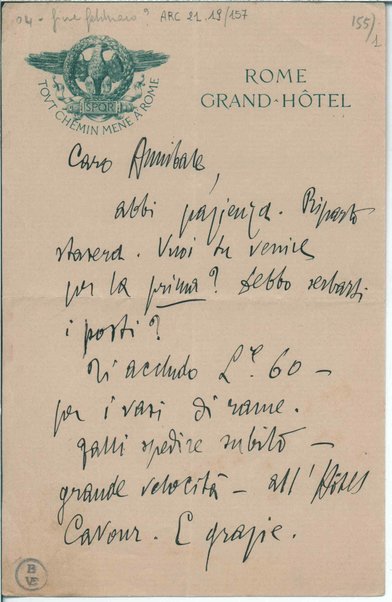 04 - fine febbraio? ARC 21.19/157
155/1
SPQR
TOVT CHEMIN MENE A ROME
ROME
GRAND-HÔTEL
Caro Annibale,
abbi pazienza. Riparto
stasera. Vuoi tu venire
per la prima? Debbo serbarti
i posti?
Ti accludo L.re 60 -
per i vasi di rame.
Falli spedire subito -
grande velocità - all'Hôtel
Cavour. E grazie.
BVE